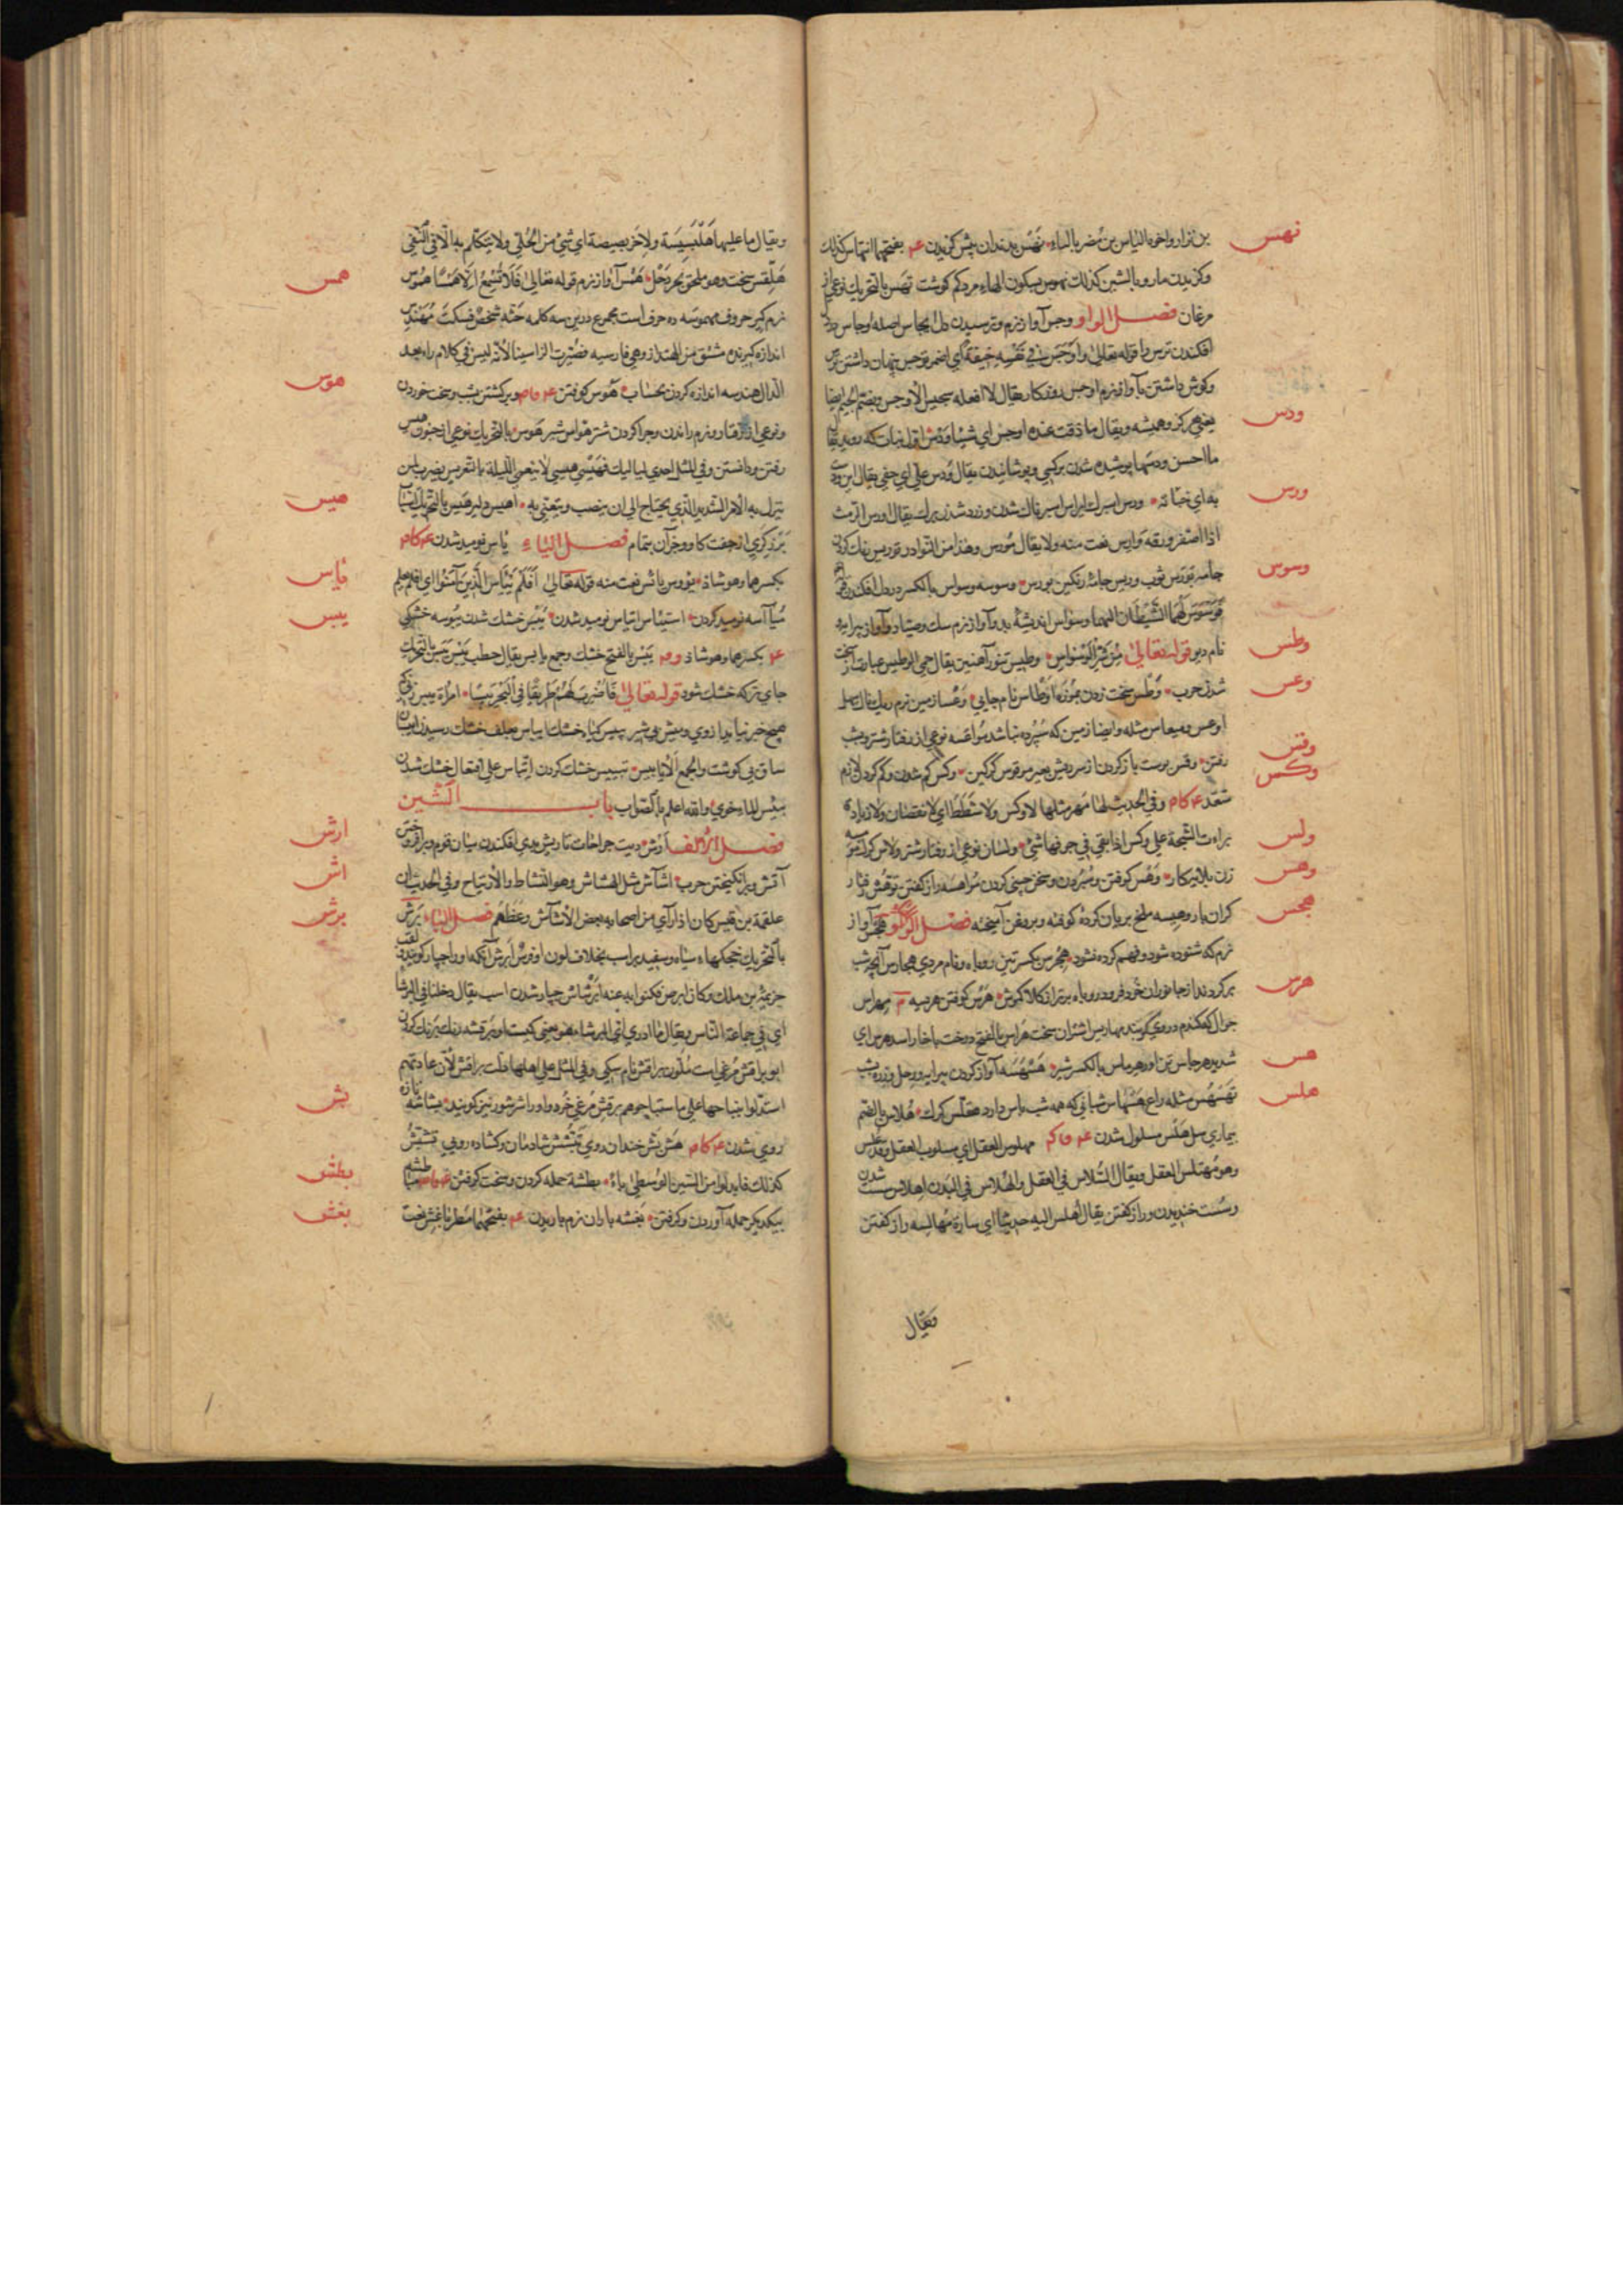 نهس
بن نزار واخوه الیاس بن مُضر بالیاء نَهْس بدندان پیش کزیدن ع بفتحهما انتهاس کذلك
وکزیدن مار وبالشین کذلك نهوس بسکون الهاء مرد کم کوشت نُهَس بالتحریك نوعی از
مرغان فصل الواو وجس آواز نرم وترسیدن دل
افکندن ترس را قوله تعالی وَاَوْجَسَ فی نَفْسِهِ خِیفَةً ای اضمر توجس پنهان داشتن
وکوش داشتن بآواز نرم اوجس روزکار یقال لا افعله سجیس الاوجس وبضم الجیم ایضا
ودس
یعنی هرکز وهمیشه ویقال ما ذقت عنده اوجس ای شیئا وَدْس اول نبات که روید یقال
ما احسن ودسها پوشیده شدن برکسی وپوشانیدن یقال وَدَس علیّ ای خفی یقال این ودست
ورس
به ای خبأته ورس اسپرك ایراس اسپرناك شدن وزرد شدن برك یقال اورس الرمث
اذا اصفر ورقه وارس نعت منه ولا یقال مُورس وهذا من النوادر توریس رنك کردن
وسوس
جامه بورس ثوب وریس جامهٔ رنکین بورس وسوسه وسواس بالکسر در دل افکندن
فَوَسْوَسَ لَهُمَا الشَّیْطَان الیهما وسواس اندیشهٔ بد وآواز نرم سك وصیاد وآواز پیرایه
وطس
نام دیو قوله تعالی مِنْ شَرِّ الْوَسْوَاسِ وطیس تنور آهنین یقال حمی الوطیس عبارة از سخت
وعس
شدن حرب وَطْس سخت زدن بموزه اوطاس نام جایی وَعْسا زمین نرم ریك ناك سهل
اوعس ومیعاس مثله وایضا زمین که سُپرده نباشد مُواعسه نوعی از رفتار شتر وبشب
وقس
رفتن وقس پوست باز کردن از سر ریش بعیر موقوس کرکین وکس کم شدن وکم کردن لازم
وکس
متعد ع ک ام وفی الحدیث لها مهر مثلها لا وکس ولا شَطَطَ ای لا نقصان ولا زیادة
ولس
براءت الشجة علی وکس اذا بقی فی جوفها شیٔ ولسان نوعی از رفتار شتر ولاس کرك
وهس
زن بلایه کار وَهْس کوفتن وسُپردن وسخن چینی کردن مُواهسه راز کفتن توهّس رفتار
هجس
کران بار وهیسه ملخ بریان کرده کوفته وبروغن آمیخته فصل الهاء هَجْس آواز
نرم که شنوده شود وفهم کرده نشود هِجْرِس بکسرتین روباه ونام مردی هجارس آنچه شب
هرس
برکردند از جانوران خُرد فرود روباه برتر از کلاکموش هَرْس کوفتن هریسه م مهراس
جوال که کندم در وی کوبند مهاریس اشتران سخت هَراس بالفتح درخت با خار اسد هرس ای
هس
شدید هرجاس تن اور هرماس بالکسر شیر هَسْهَسَه آواز کردن پیرایه ورحل وزره بشب
هلس
تَهَسْهُس مثله راع هَسْهَاس شبانی که همه شب پاس دارد هقلّس کرك هُلاس بالضم
بیماری سل هَلْس مسلول شدن ع ف ک م مهلوس العقل ای مسلوب العقل وقد هُلس
وهو مُهتلس العقل ویقال السُلاس فی العقل والهُلاس فی البدن اهلاس سست شدن
وسُست خندیدن وراز کفتن یقال اَهلس الیه حدیثا ای سارّه مُهالسه راز کفتن
ویقال
ویقال ما علیها هَلْبَسِیسَة ولا خربصیصة ای شیٔ من الحُلیّ ولا یتکلّم به الا فی النفی
همس
هِلَّقْس سخت وهو ملحق بجردَحْل هَمْس آواز نرم قوله تعالی فَلاَ تَسْمَعُ اِلاَّ هَمْساً هَمُوس
نرم کیر حروف مهموسه ده حرف است مجموع درین سه کلمه حَثَّه شَخْصٌ فَسَکَتَ مُهَنْدِس
اندازه کیرنده مشتق من الهنداز وهی فارسیه فصُیّرت الزا سینا لانه لیس فی کلام زاء بعد
هوس
الدال هندسه اندازه کردن بحساب هَوْس کوفتن ع ف ام وبرکشتن بشب وسخت خوردن
ونوعی از رفتار ونرم راندن وچرا کردن شتر هوّاس شیر هَوَس بالتحریك نوعی از جنون هیس
رفتن ودانستن وفی المثل احدی لیالیك فَهِیْسِی هیسی لا تنعمی اللیلة بالتعریس یضرب لمن
هیس
نزل به الامر الشدید الذی یحتاج الی ان ینصب ویتعنّی به اهیس دلیر هَیس بالتحریك آنچه
بَرْزکری از جفت کاو وجز آن بتمام فصل الیاء یأس نومید شدن ع ک ام
یأس
بکسرهما وهو شاذ یؤوس یائس نعت منه قوله تعالی اَفَلَمْ یَیْأسِ الَّذِینَ آمَنُوا ای افلم یعلم
یبس
مُیأَسه نومید کردن استیئاس اتیاس نومید شدن یُبْس خشك شدن یُبوسه خشکی
ع بکسرهما وهو شاذ وم یَبْس بالفتح خشك وجمع یابس یقال حطب یَبْس یَبَس بالتحریك
جای تر که خشك شود قوله تعالی فَاضْرِبْ لَهُمْ طَرِیقاً فِی الْبَحْرِ یَبَساً امراة یبس زنی که
هیچ خیر نیاید از وی ومیش بی شیر یبیس کیاه خشك ایباس بعلف خشك رسیدن ایبسان
ساق بی کوشت والجمع الایابس تیبیس خشك کردن اتّباس علی افتعال خشك شدن
یبیس الماء خوی والله اعلم بالصواب باب الشین
ارش
فصل الالف اَرْش دیت جراحات تاریش بدی افکندن میان قوم وبر افروختن
اش
آتش وبرانکیختن حرب اشاش مثل الهشاش وهو النشاط والارتیاح وفی الحدیث ان
برش
علقمة بن قیس کان اذا رآی من اصحابه بعض الاشاش وعظهم فصل الباء بَرَش
بالتحریك خجکهاء سیاه وسفید بر اسب بخلاف لون او فرس ابرش آنکه او را چپار کویند ولقب
جزیمة بن ملك وکان ابرص فکنوا به عنه اِبْرِشاش چپار شدن اسب یقال دخلنا فی البرشا
ای فی جماعة الناس ویقال ما ادری ای البرشاء هو یعنی کیست او بَرْقشه رنك برنك کردن
ابو براقش مُرغی است مُلّون براقش نام سکی وفی المثل علی اهلها دلّت براقش لان عادتهم
بش
استدلوا بنباحها علی ما استباحوهم بِرْقِش مُرغی خُرد واو را شرشور نیز کویند بشاشه تازه
روی شدن ع ک ام هَشّ بَشّ خندان روی تَبَشْبُش شادمان وکشاده رویی تبشّش
بطش
کذلك فابدلوا من الشین الوُسطی باءً بطشة حمله کردن وسخت کرفتن ع ف ام مباطشه
بغش
بیکدیکر حمله آوردن وکرفتن بَغْشه باران نرم باریدن ع بفتحهما مطر باغش نعت